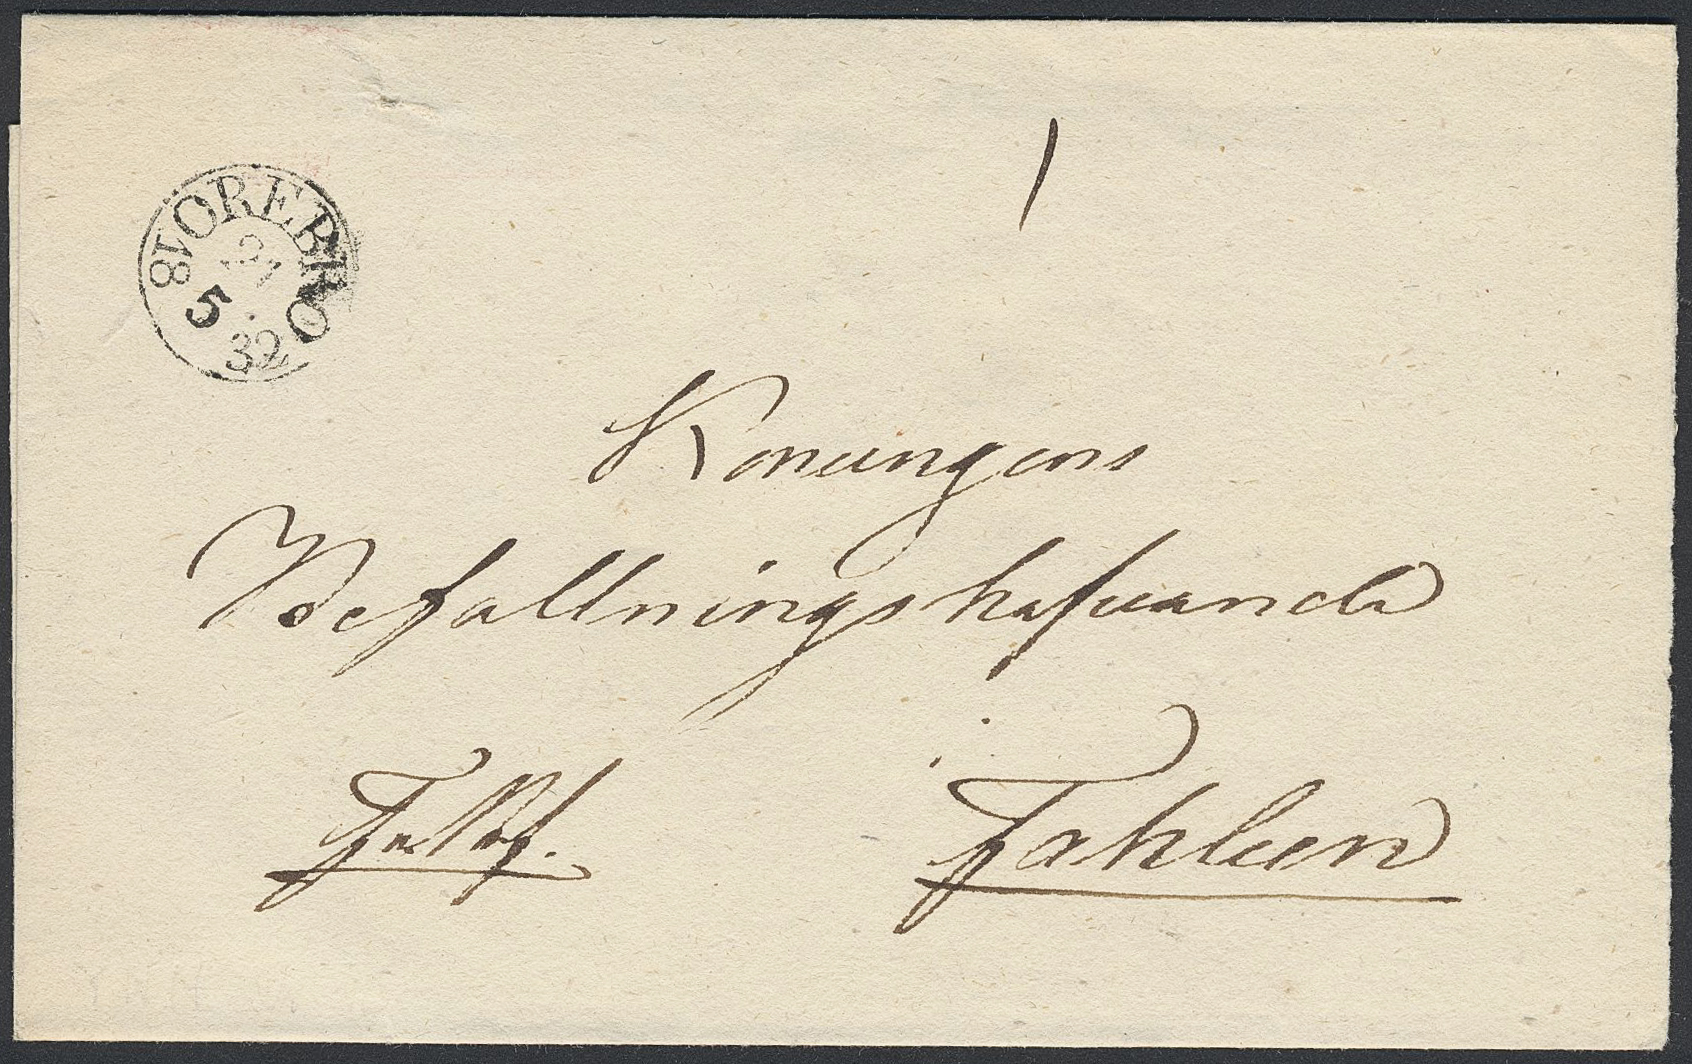 ÖREBRO
5
1832
1
Konungens
Befallningshafvande
Fahlun